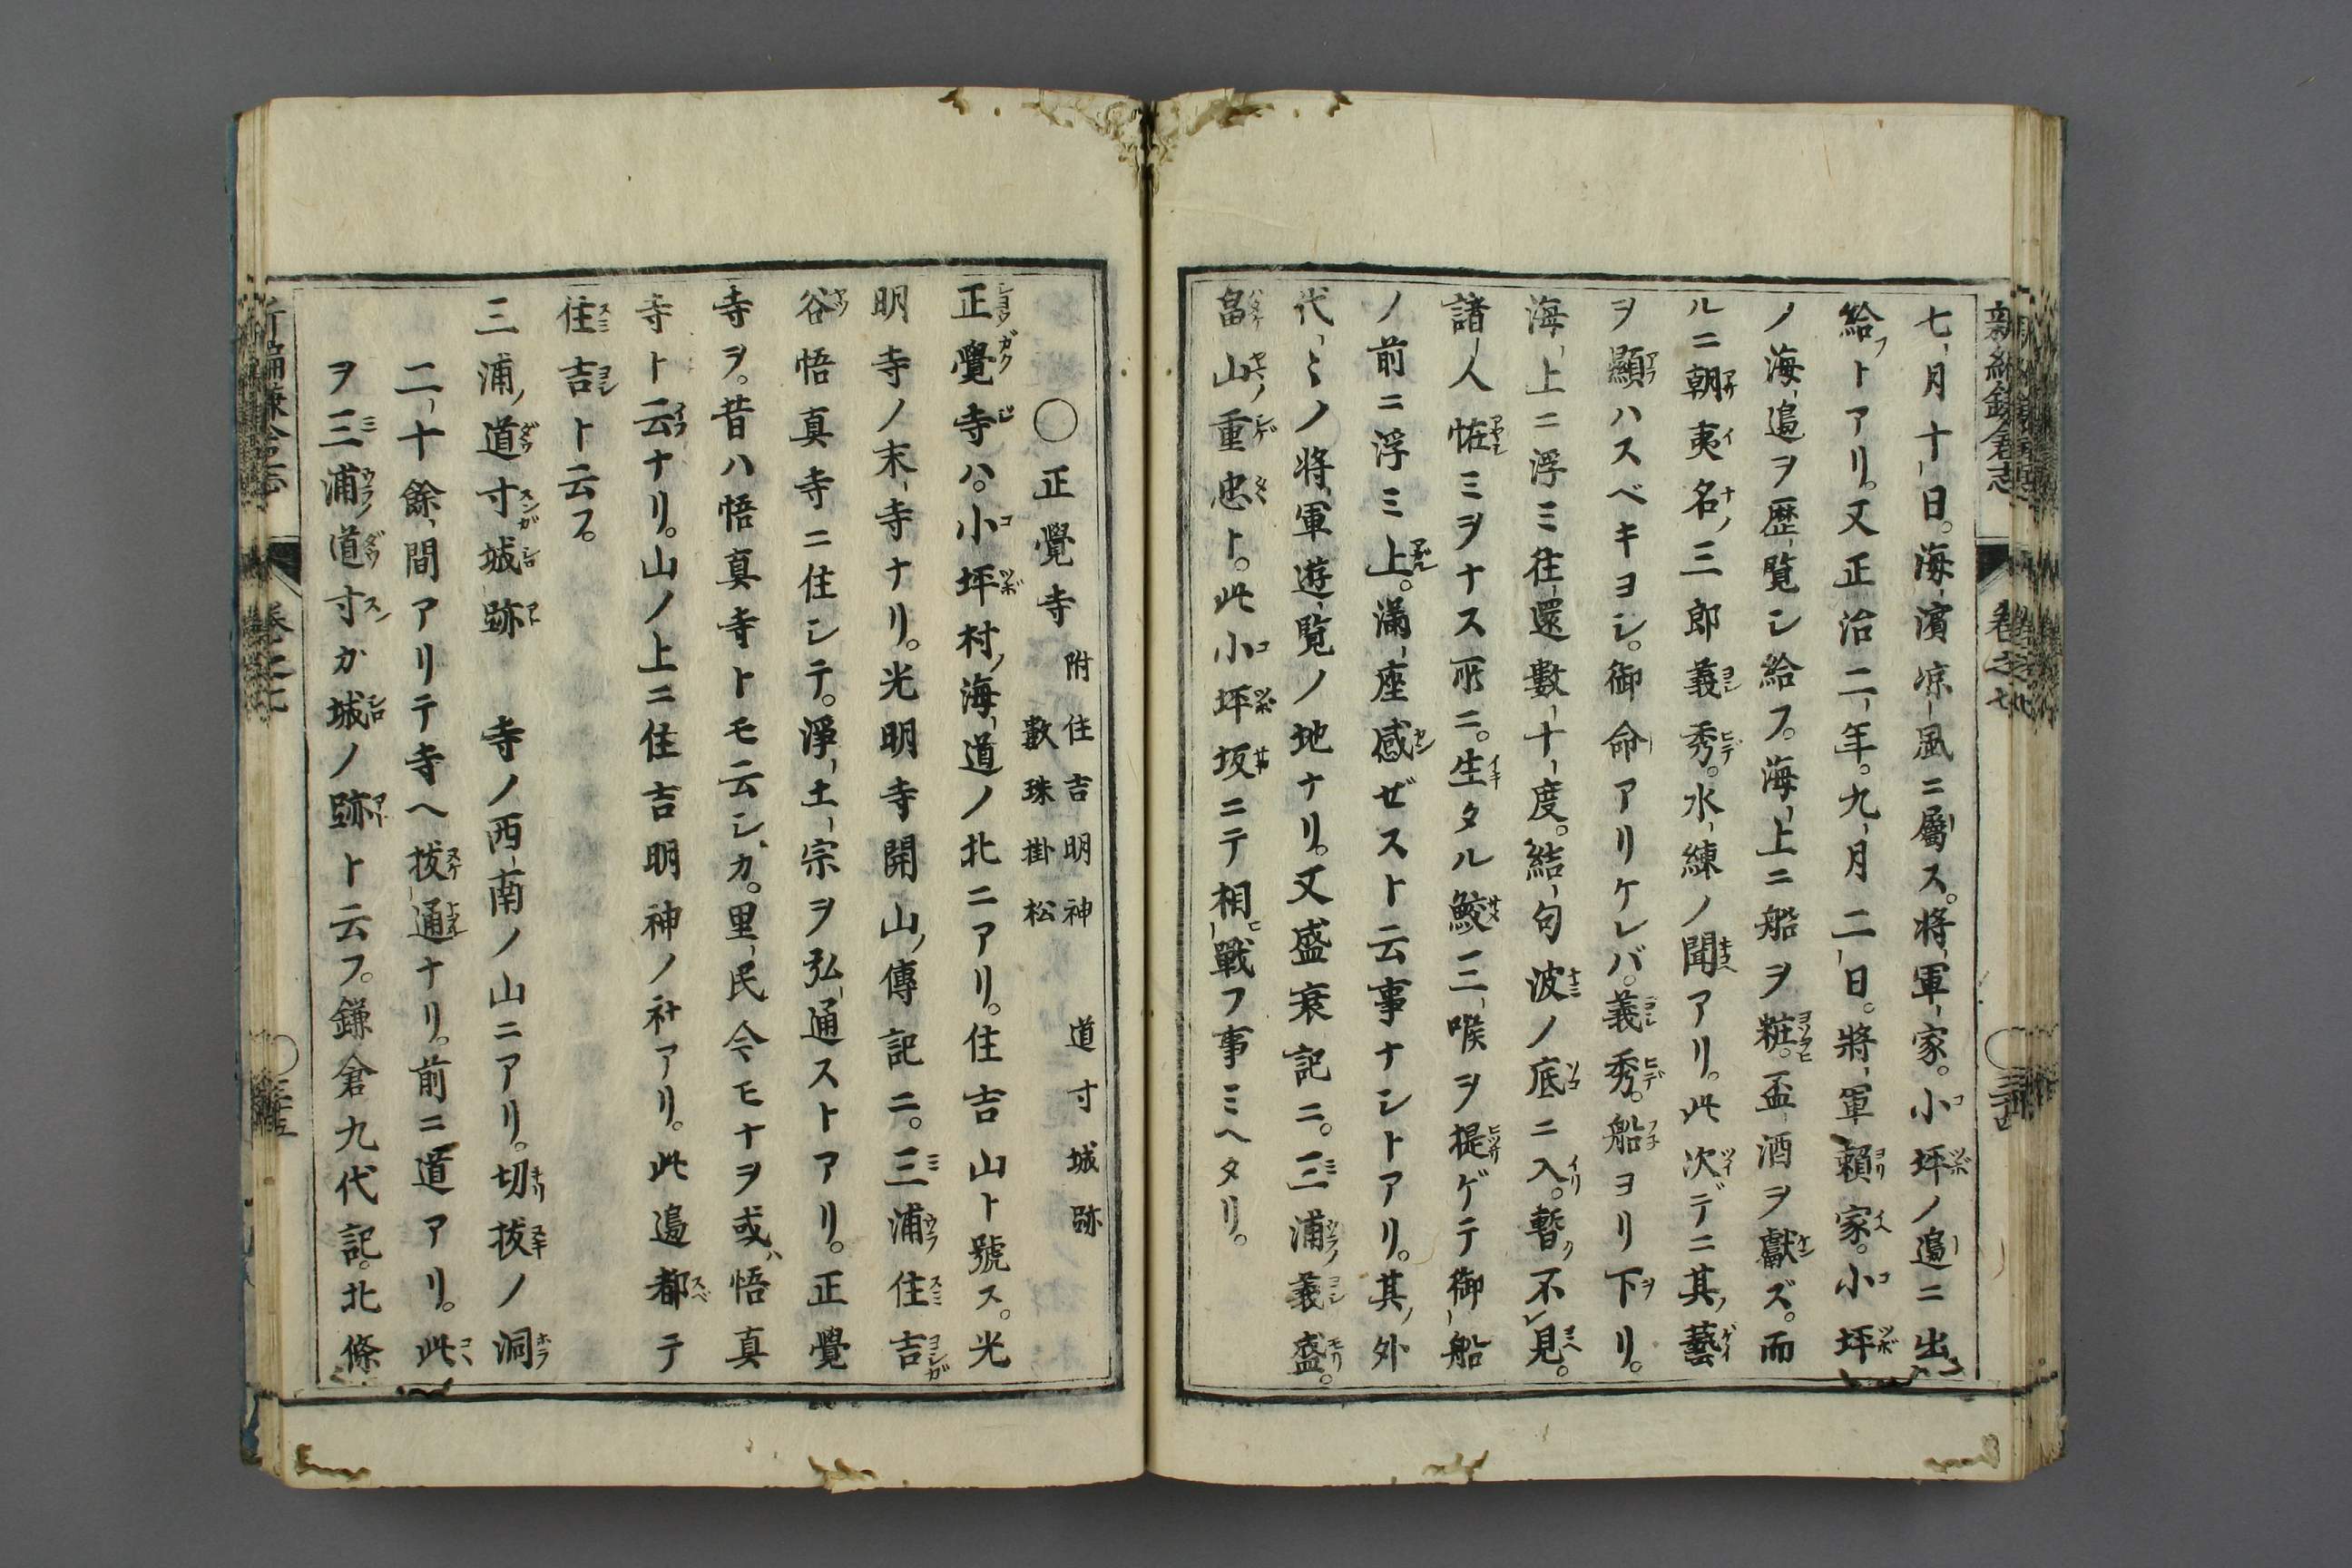 新編鎌倉志
卷之七
七月十日。海濱凉風ニ屬ス。將軍家。小坪ノ邉ニ出
給フトアリ。又正治二年。九月二日。將軍賴家。小坪
ノ海邉ヲ歴覽シ給フ。海上ニ船ヲ粧。盃酒ヲ獻ズ。而
ルニ朝夷名ノ三郎義秀。水練ノ聞アリ。此次デニ其ノ藝
ヲ顯ハスベキヨシ。御命アリケレバ。義秀。船ヨリ下リ。
海上ニ浮ミ往還數十度。結句波ノ底ニ入。暫ク不レ見。
諸人恠ミヲナス所ニ。生タル鮫三喉ヲ提ゲテ御船
ノ前ニ浮ミ上。滿座感ゼスト云事ナシトアリ。其ノ外
代々ノ將軍遊覽ノ地ナリ。又盛衰記ニ。三浦ノ義盛。
畠山ノ重忠ト。此小坪坂ニテ相ヒ戰フ事ミヘタリ。
〇正覺寺 附 住吉明神 道寸城跡
數珠掛松
正覺寺ハ。小坪村ノ海道ノ北ニアリ。住吉山ト號ス。光
明寺ノ末寺ナリ。光明寺開山ノ傳記ニ。三浦住吉
谷悟真寺ニ住シテ。淨土宗ヲ弘通ストアリ。正覺
寺ヲ。昔ハ悟真寺トモ云シカ。里民今モナヲ或ハ悟真
寺ト云ナリ。山ノ上ニ住吉明神ノ社アリ。此邉都テ
住吉ト云フ。
三浦ノ道寸城跡 寺ノ西南ノ山ニアリ。切拔ノ洞
二十餘間アリテ寺ヘ拔通ナリ。前ニ道アリ。此
ヲ三浦ノ道寸カ城ノ跡ト云フ。鎌倉九代記。北條